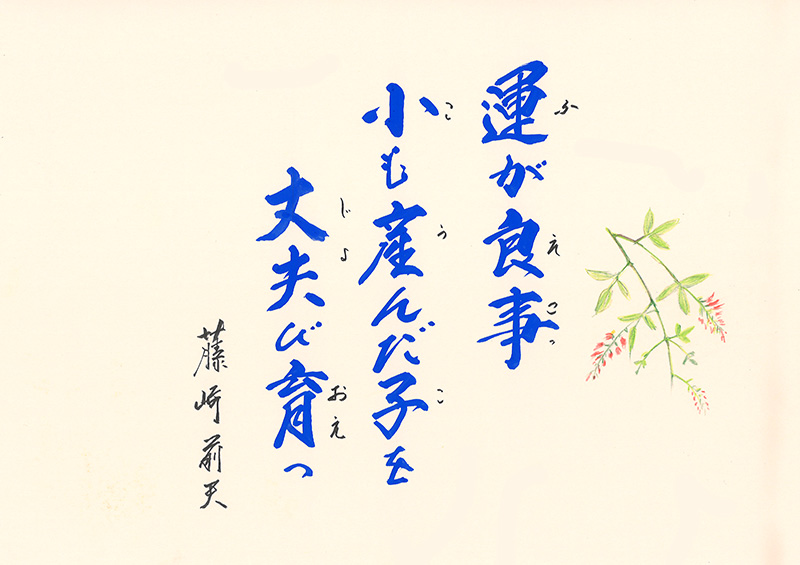 運が良事
ふ え こっ
小も産んだ子を
こ う こ
丈夫び育つ
じょ おえ
藤崎前天